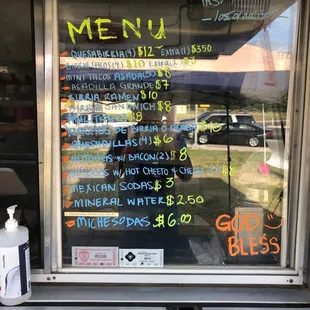 MENU
QUESABIRRIA(4) $12 Extra(1) $3.50
BIRRIA TACOS(4) $10 Extra
MINI TACOS ASADA(5) $8
ASADILLA GRANDE $7
BIRRIA RAMEN $10
SANDWICH $8
MINI $8
DE BIRRIA O $10
QUESADILLAS(4) $6
W/ BACON(2) $8
W/ HOT CHEETO & CHEESE
MEXICAN SODAS $3
MINERAL WATER $2.50
MICHESODAS $6.00
GOD
BLESS